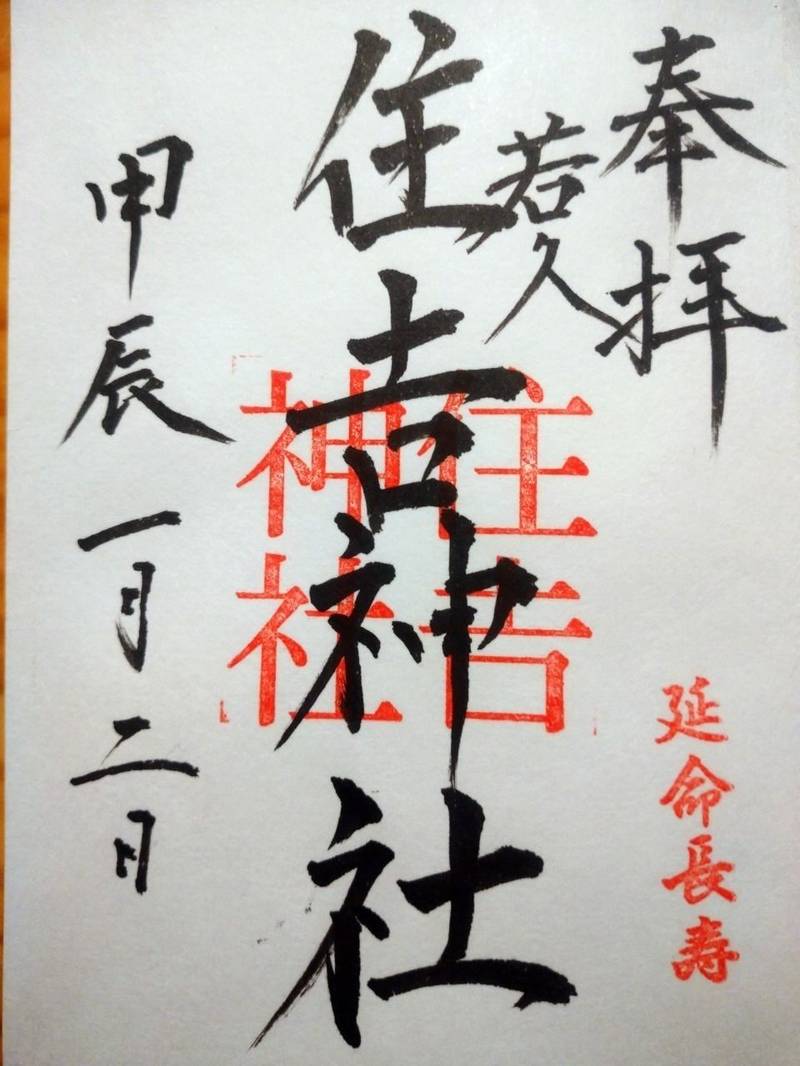 奉拝
延命長寿
若久
住吉神社
住吉
神社
甲辰 一月二日